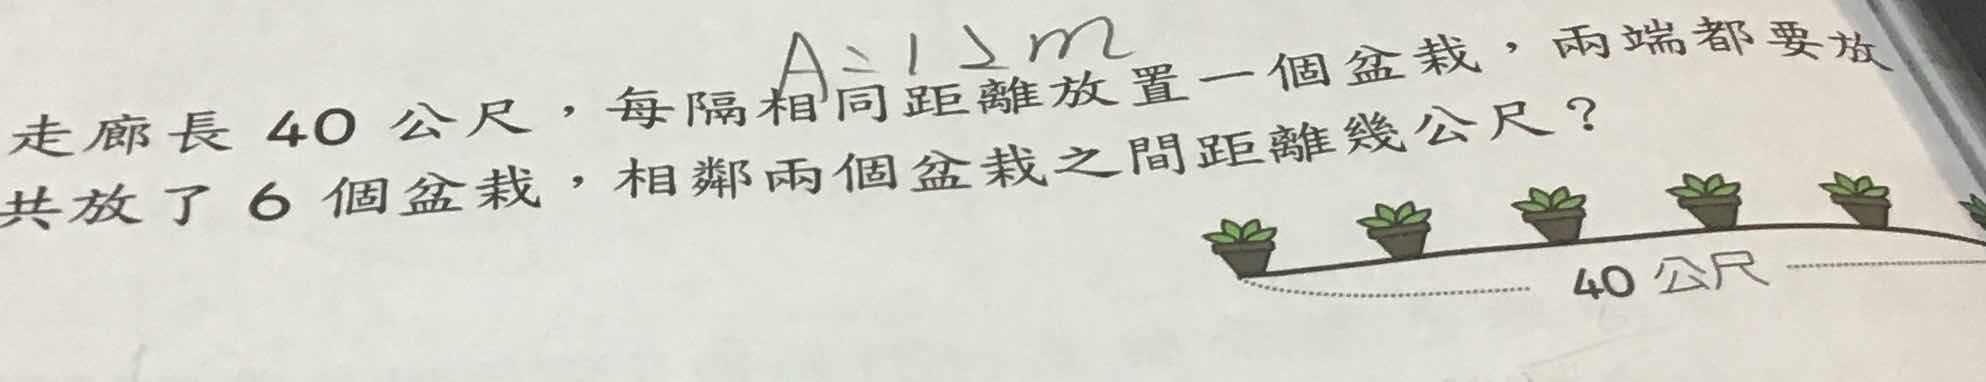 A=12m
走廊長 40 公尺，每隔相同距離放置一個盆栽，兩端都要放
共放了 6 個盆栽，相鄰兩個盆栽之間距離幾公尺？
40 公尺